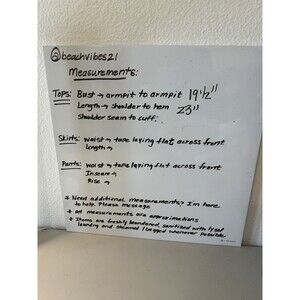 @beachvibes21
Measurements:
Tops: Bust → armpit to armpit 19½"
Length → shoulder to hem 23"
Shoulder seam to cuff:
Skirts: waist → tape laying flat across front
Length →
Pants: waist → tape laying flat across front
Inseam →
Rise →
* Need additional measurements? I'm here
to help. Please message
* All measurements are approximations
* Items are freshly laundered, sanitized with lysol
laundry and steamed / bagged whenever possible.